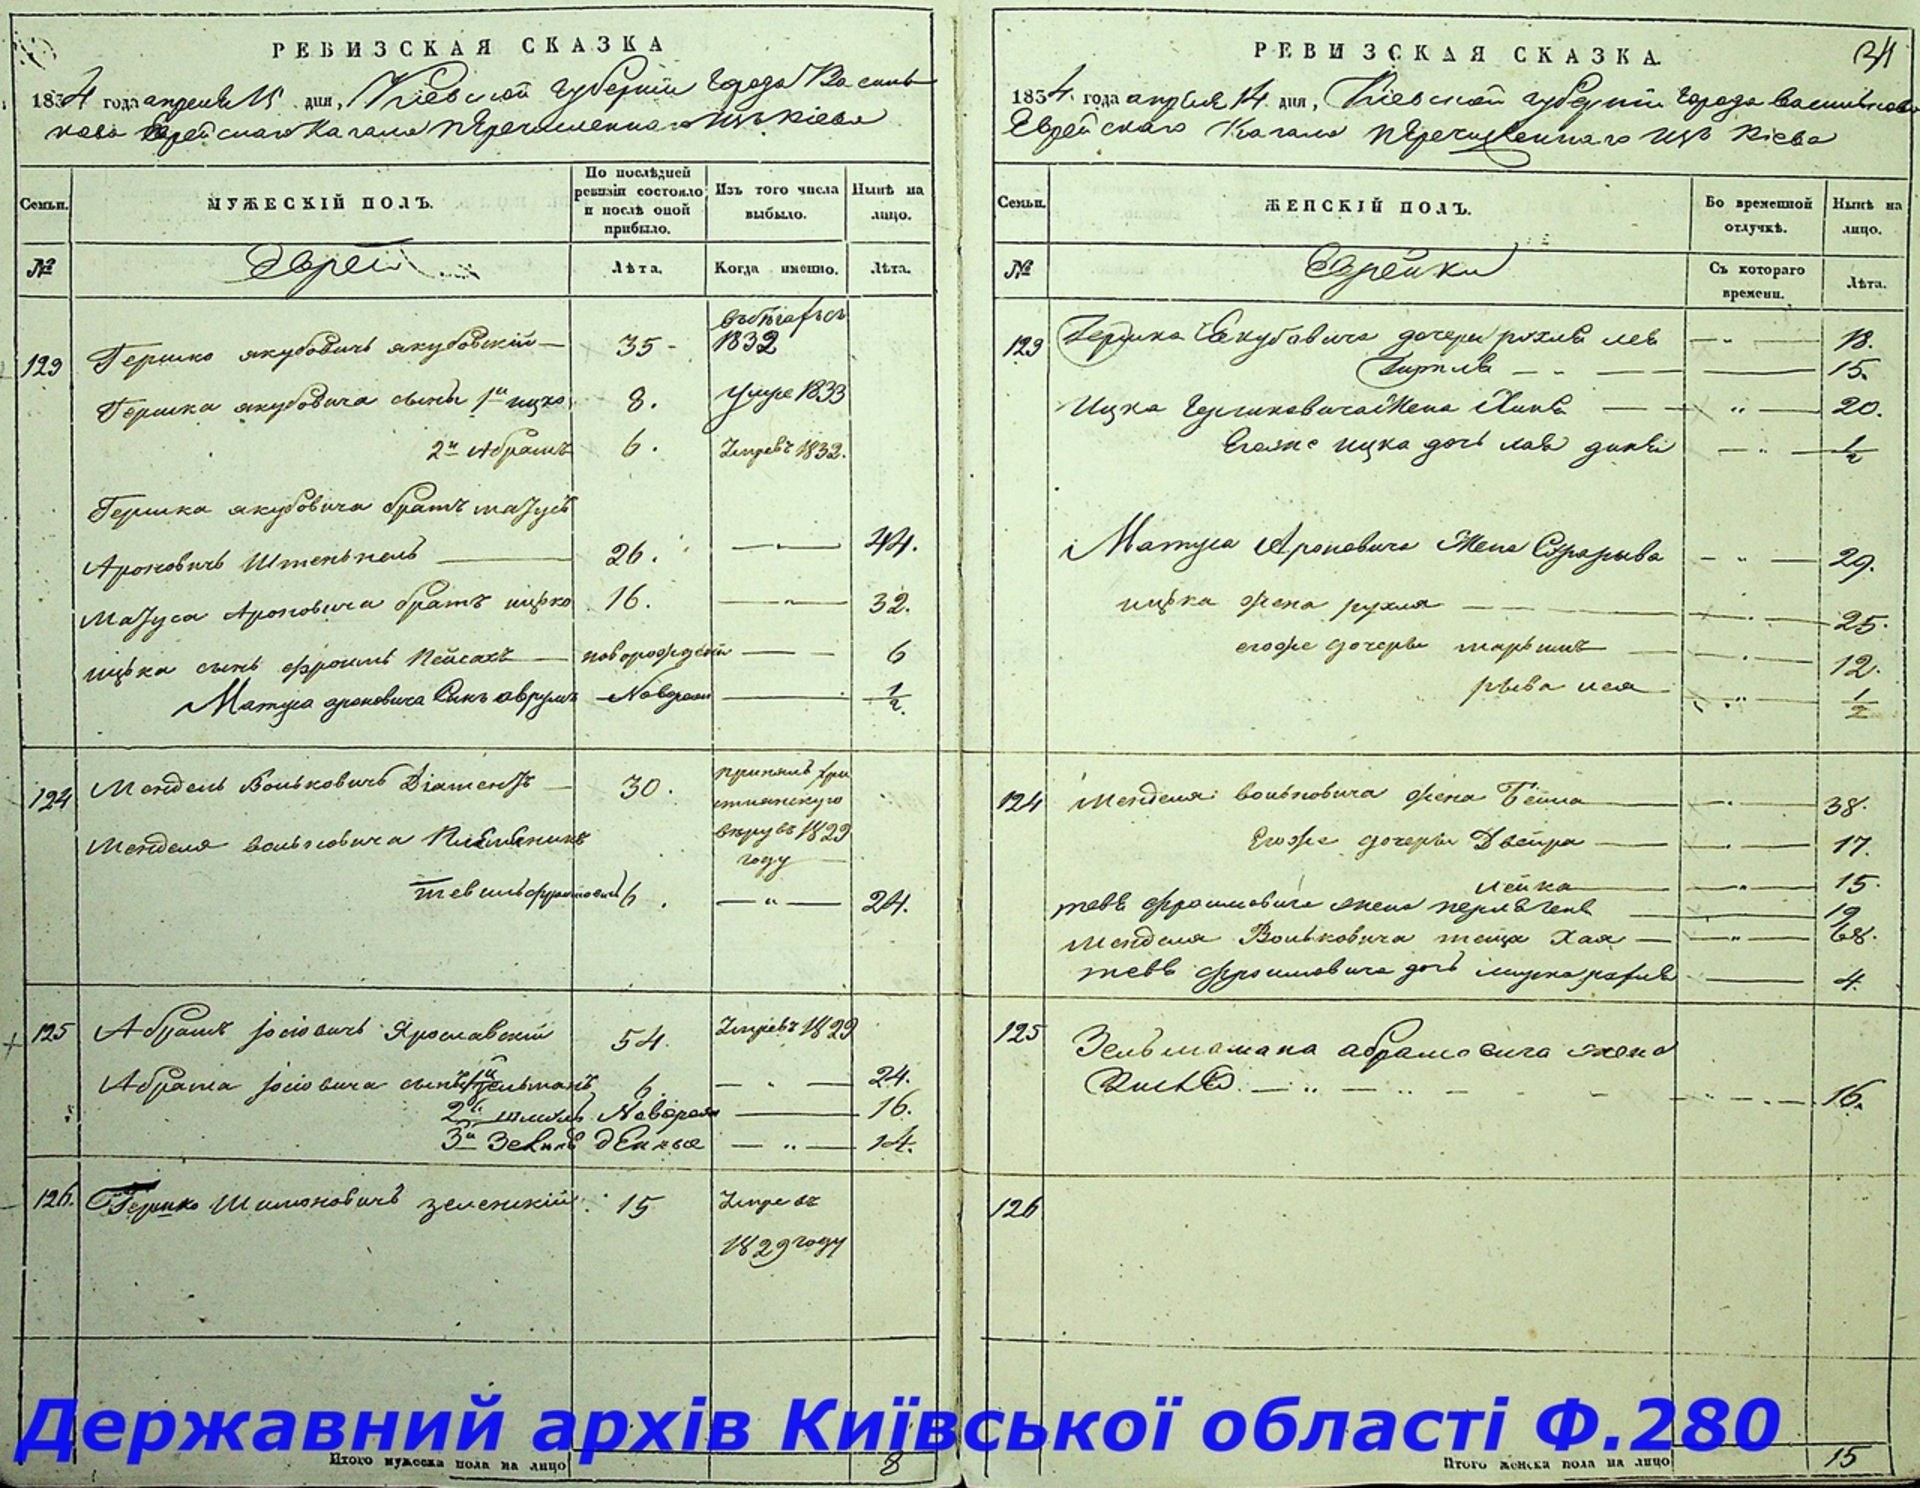 РЕВИЗСКАЯ СКАЗКА
1834 года апреля 15 дня, Киевской Губернии города Василь
кова Еврейскаго Кагала перечисленнаго изъ Кіева
Семьи.
МУЖЕСКІЙ ПОЛЪ.
По послѣдней ревизіи состояло и послѣ оной прибыло.
Изъ того числа выбыло.
Нынѣ на лицо.
№
Евреи
Лѣта.
Когда именно.
Лѣта.
123 Гершко Якубовичъ Якубовскій 35 1832
Гершка Якубовича сыны 1й Ицко 8. умре 1833
2й Абрамъ 6. Умревъ 1832.
Гершка Якубовича братъ матусъ
Ароновичъ Штенпель 26. 44.
Матуса Ароновича братъ ицько 16. 32.
ицька сынъ фроимъ Пейсахъ 6
Матуса ароновича Сынъ аврумъ 1/2.
124 Мендель Вольковичъ 30. принялъ хри
стианскую
веру въ 1829
году
Менделя вольковича Племеникъ
6. 24.
125 Абрамъ Іосіовичъ Ярославский 54. Умревъ 1829
Абрама Іосіовича сынъ 1й Зельманъ 6. 24.
2й шмуль Новорож 16.
3й денные 14.
126. Гершко Шимоновичъ 15 Умревъ
1829 году
Итого мужеска пола на лицо 8
РЕВИЗСКАЯ СКАЗКА.
34
1834. года апреля 14. дня, Киевской губернии города Василькова
Еврейскаго Кагала перечисленнаго изъ Кіева
Семьи.
ЖЕНСКІЙ ПОЛЪ.
Во временной отлучкѣ.
Нынѣ на лицо.
№
Еврейки
Съ котораго времени.
Лѣта.
123 Гершка Якубовича дочери рохля лея 18.
15.
Ицка Гершковича Жена 20.
Егоже ицка дочь 1/2
Матуса Ароновича Жена 29.
ицька жена рухля 25.
егоже дочери 12.
1/2
124 Менделя вольковича жена Бейла 38.
Егоже дочери Двейра 17.
лейка 15.
фроимовича жена 19
Менделя Вольковича теща Хая 68.
фроимовича дочь 4.
125 Зельмамана абрамовича жена
16.
126
Итого женска пола на лицо 15
Державний архів Київської області Ф.280